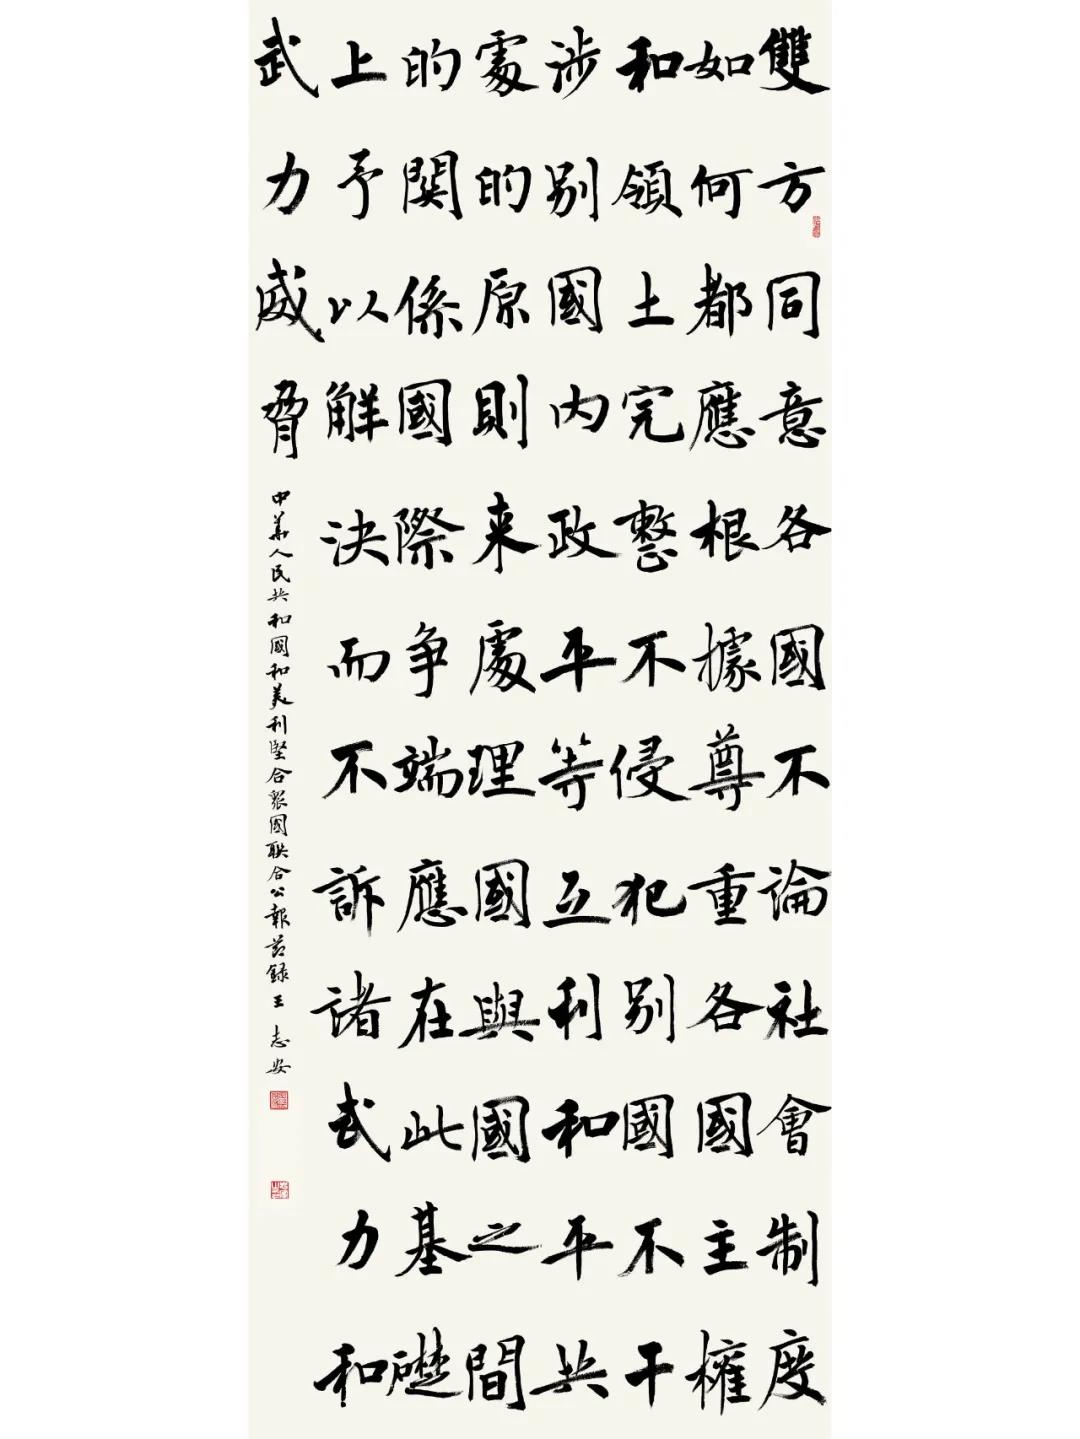 雙方同意各國不論社會制度
如何都應根據尊重各國主權
和領土完整不侵犯别國不干
涉别國内政平等互利和平共
處的原則来處理國與國之間
的關係國際争端應在此基礎
上予以解決而不訴諸武力和
武力威脅
中華人民共和國和美利堅合衆國联合公報节録王志安